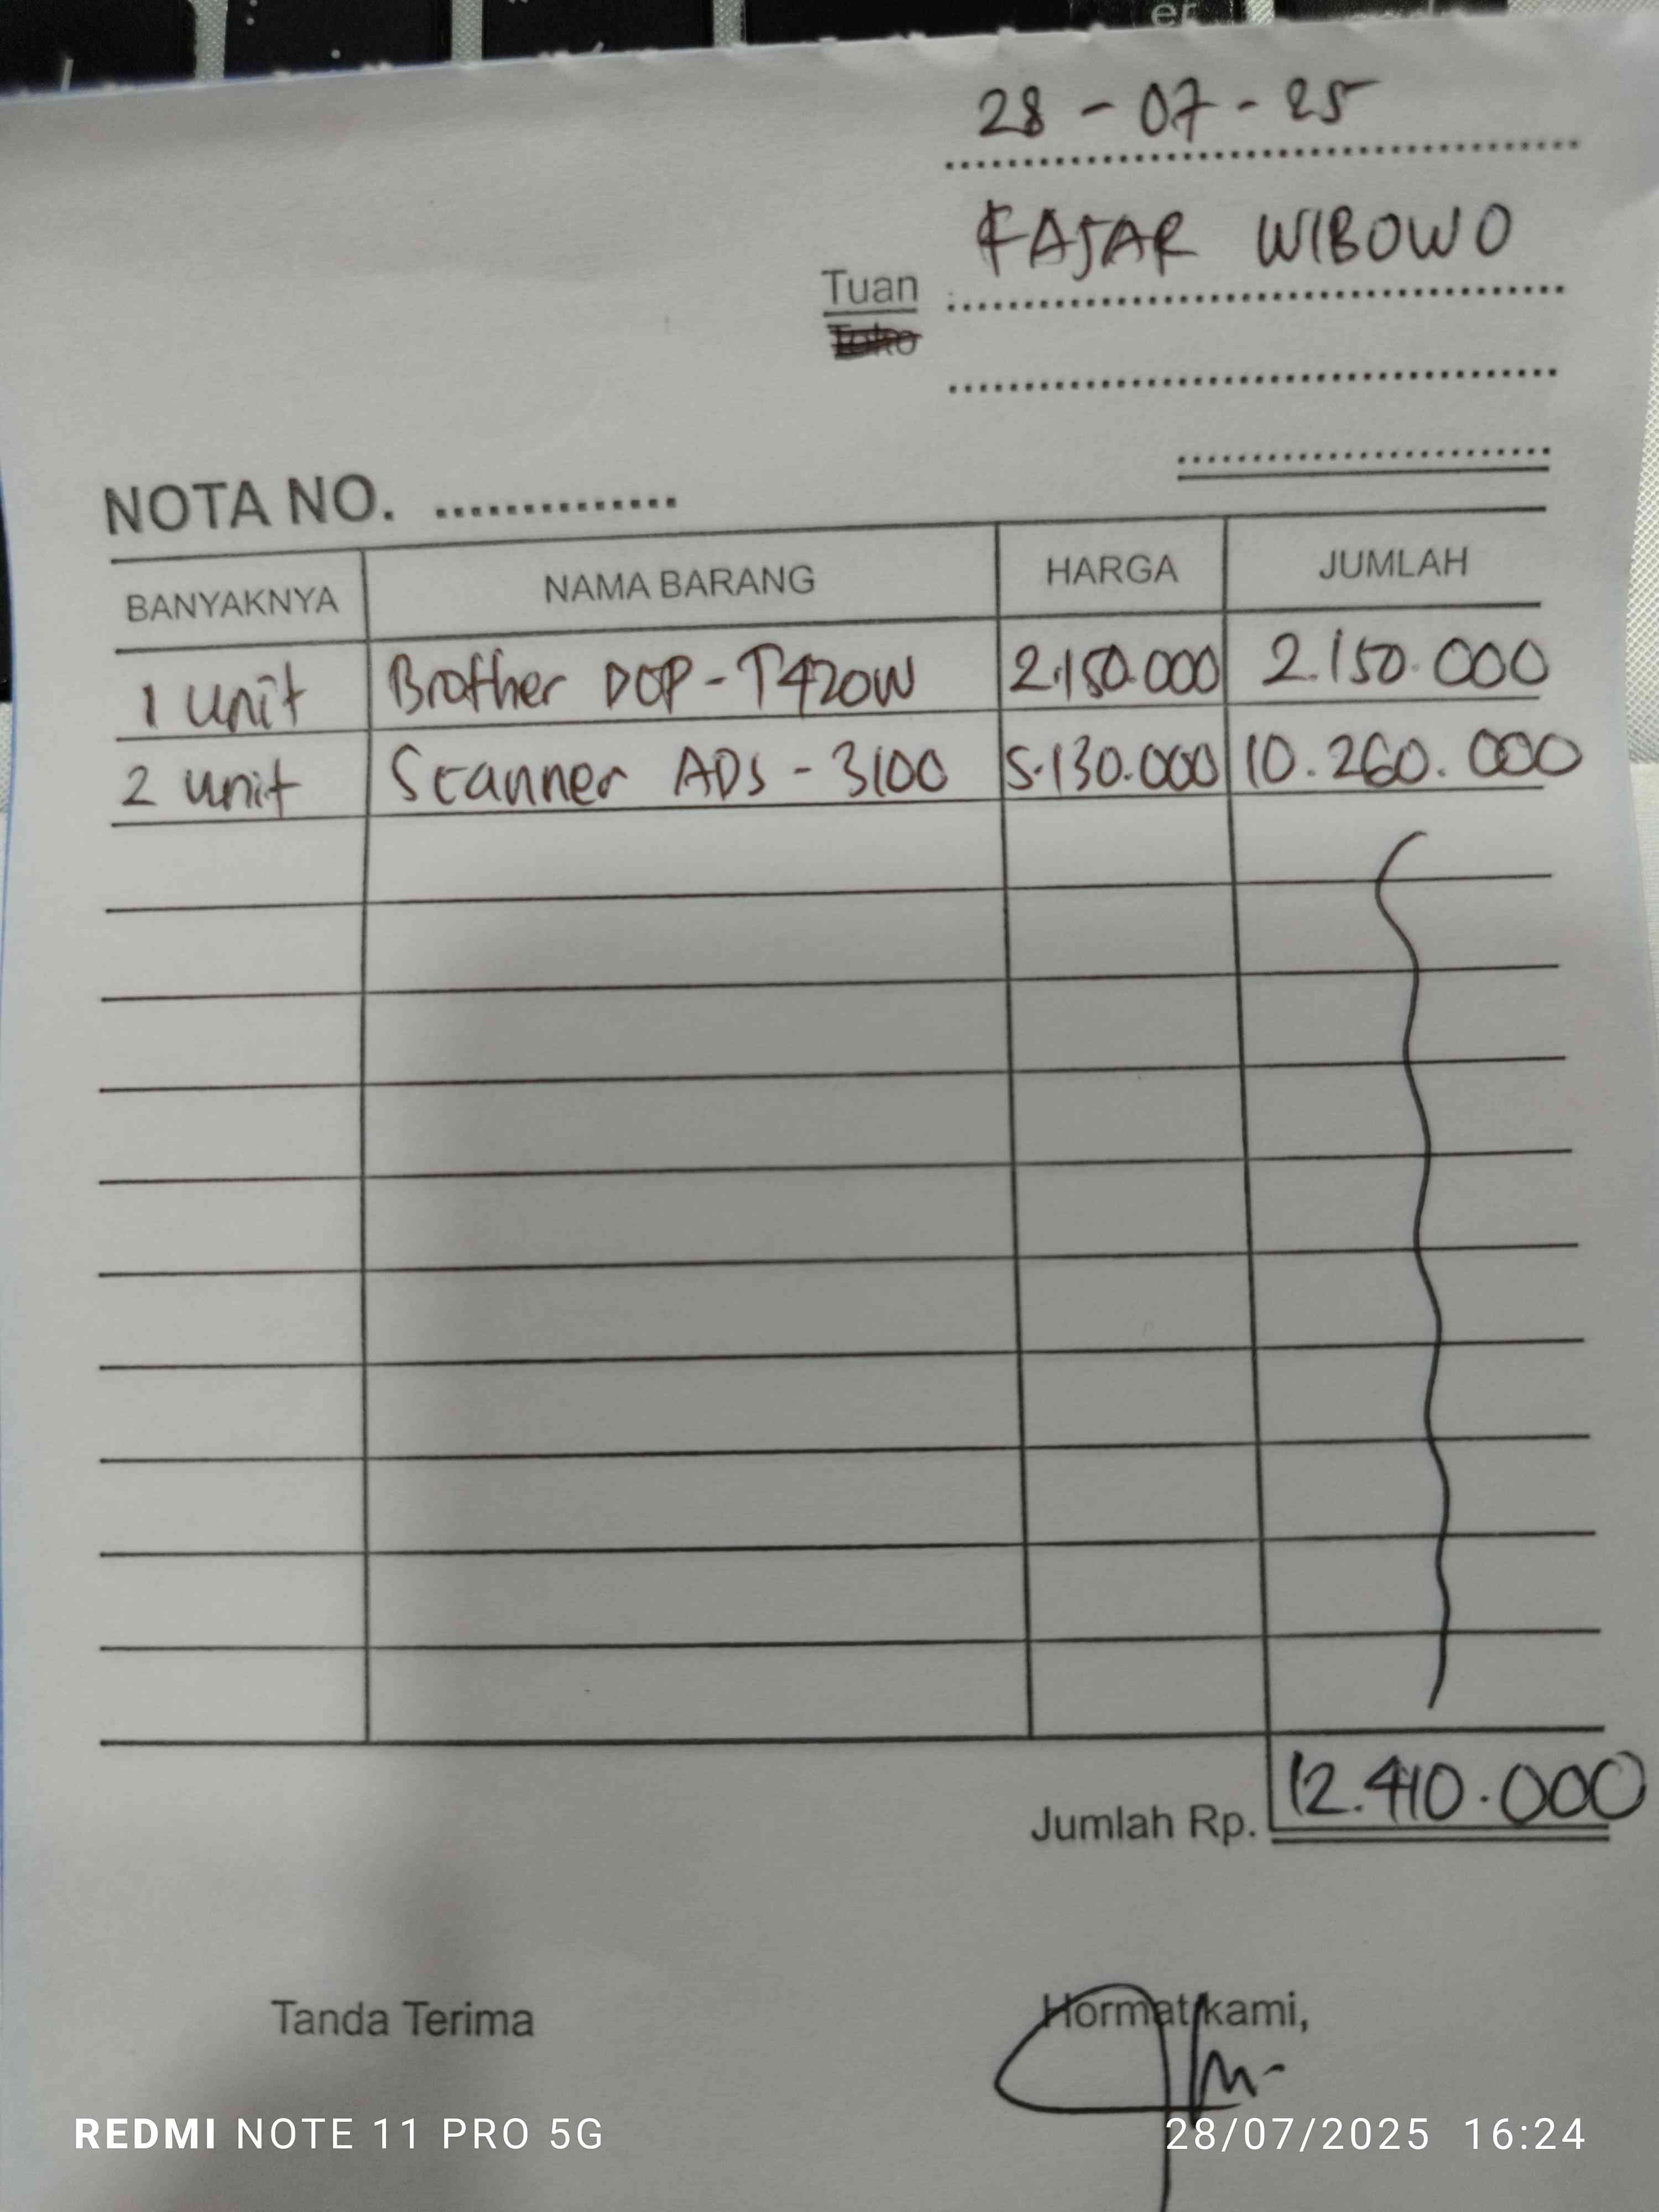 er
28 - 07 - 25
FAJAR WIBOWO
Tuan
Toko
NOTA NO. ..............
BANYAKNYA NAMA BARANG HARGA JUMLAH
1 unit Brother DCP - T420W 2.150.000 2.150.000
2 unit Scanner ADS - 3100 5.130.000 10.260.000
Jumlah Rp. 12.410.000
Tanda Terima Hormat kami,
REDMI NOTE 11 PRO 5G 28/07/2025 16:24